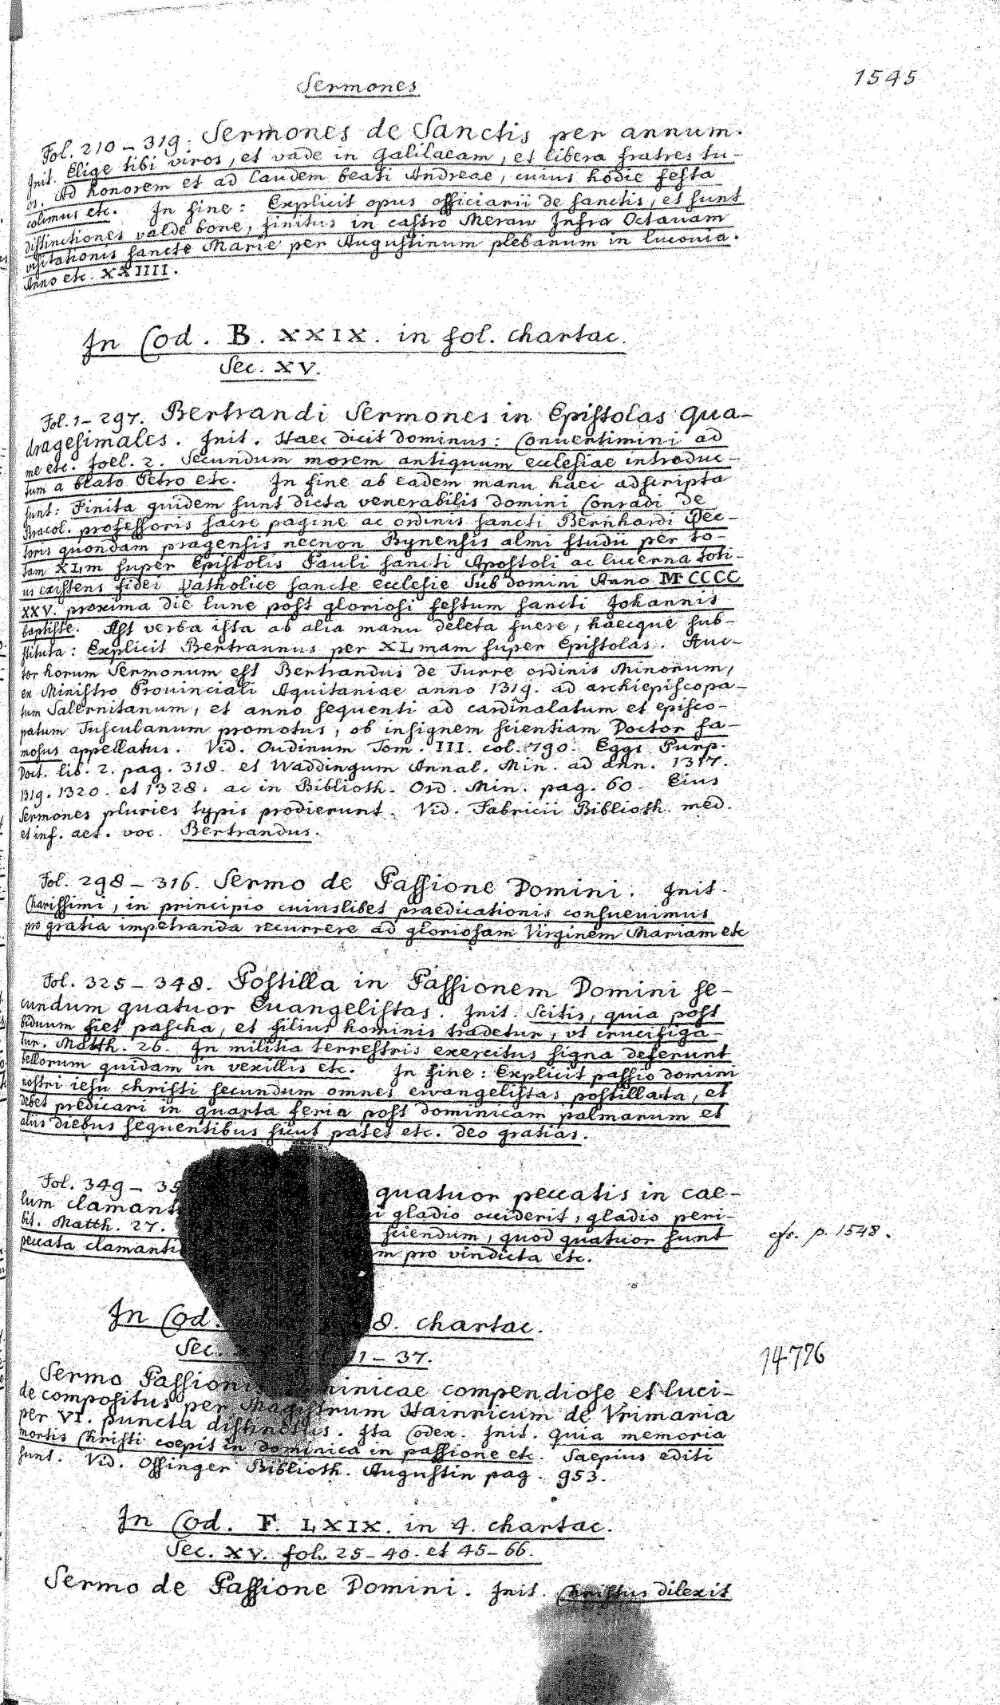 Sermones
1545
Fol. 210 – 319: Sermones de Sanctis per annum.
Init. Elige tibi viros, et vade in Galilaeam, et libera fratres tu-
os. Ad honorem et ad laudem beati Andreae, cuius hodie festa
colimus etc. In fine: Explicit opus officiarii de sanctis, et sunt
distinctiones valde bone, finitus in castro Meraw Infra Octavam
visitationis sancte Marie per Augustinum plebanum in luconia.
Anno etc. XXIIII.
In Cod. B. XXIX. in fol. chartac.
Sec. XV.
Fol. 1 – 297. Bertrandi Sermones in Epistolas qua-
dragesimales. Init. Haec dicit dominus: Convertimini ad
me etc. Joel. 2. Secundum morem antiquum ecclesiae introduc-
tum a beato Petro etc. In fine ab eadem manu haec adscripta
sunt: Finita quidem sunt dicta venerabilis domini Conradi de
Bracol. professoris sacre pagine ac ordinis sancti Bernhardi Rec-
toris quondam pragensis necnon Bynensis almi studii per to-
tam XLm super Epistolis Pauli sancti Apostoli ac lucerna toti-
us existens fidei Catholice sancte ecclesie Sub domini Anno MCCCC
XXV. proxima die lune post gloriosi festum sancti Johannis
baptiste. Ast verba ista ab alia manu deleta fuere, haecque sub-
stituta: Explicit Bertrannus per XLmam super Epistolas. Auc-
tor horum Sermonum est Bertrandus de Turre ordinis Minorum,
ex Ministro Provinciali Aquitaniae anno 1319. ad archiepiscopa-
tum Salernitanum, et anno sequenti ad cardinalatum et episco-
patum Tusculanum promotus, ob insignem scientiam Doctor fa-
mosus appellatus. Vid. Oudinum Tom. III. col. 790. Eggs Purp.
Doct. lib. 2. pag. 318. et Waddingum Annal. Min. ad ann. 1317.
1319. 1320. et 1328. ac in Biblioth. Ord. Min. pag. 60. Eius
Sermones pluries typis prodierunt. Vid. Fabricii Biblioth. med.
et inf. aet. voc. Bertrandus.
Fol. 298 – 316. Sermo de Passione Domini. Init.
Charissimi, in principio cuiuslibet praedicationis consuevimus
pro gratia impetranda recurrere ad gloriosam Virginem Mariam etc
Fol. 325 – 348. Postilla in Passionem Domini se-
cundum quatuor Euangelistas. Init. Scitis, quia post
biduum fiet pascha, et filius hominis tradetur, ut crucifiga-
tur. Matth. 26. In militia terrestris exercitus signa deferunt
bellorum quidam in vexillis etc. In fine: Explicit passio domini
nostri iesu christi secundum omnes ewangelistas postillata, et
debet predicari in quarta feria post dominicam palmarum et
aliis diebus sequentibus sicut patet etc. Deo gratias.
Fol. 349 – 35 quatuor peccatis in cae-
lum clamant i gladio occiderit, gladio peri-
bit. Matth. 27. sciendum, quod quatuor sunt
peccata clamanti m pro vindicta etc.
cfr. p. 1548.
In Cod. 8. chartac.
Sec. 1 – 37.
14776
Sermo Passionis Dominicae compendiose et luci-
de compositus per Magistrum Hainricum de Vrimaria
per VI. puncta distinctus. Ita Codex. Init. Quia memoria
mortis Christi coepit in dominica in passione etc. Saepius editi
sunt. Vid. Ossinger Biblioth. Augustin pag. 953.
In Cod. F. LXIX. in 4. chartac.
Sec. XV. fol. 25 – 40. et 45 – 66.
Sermo de Passione Domini. Init. Christus dilexit